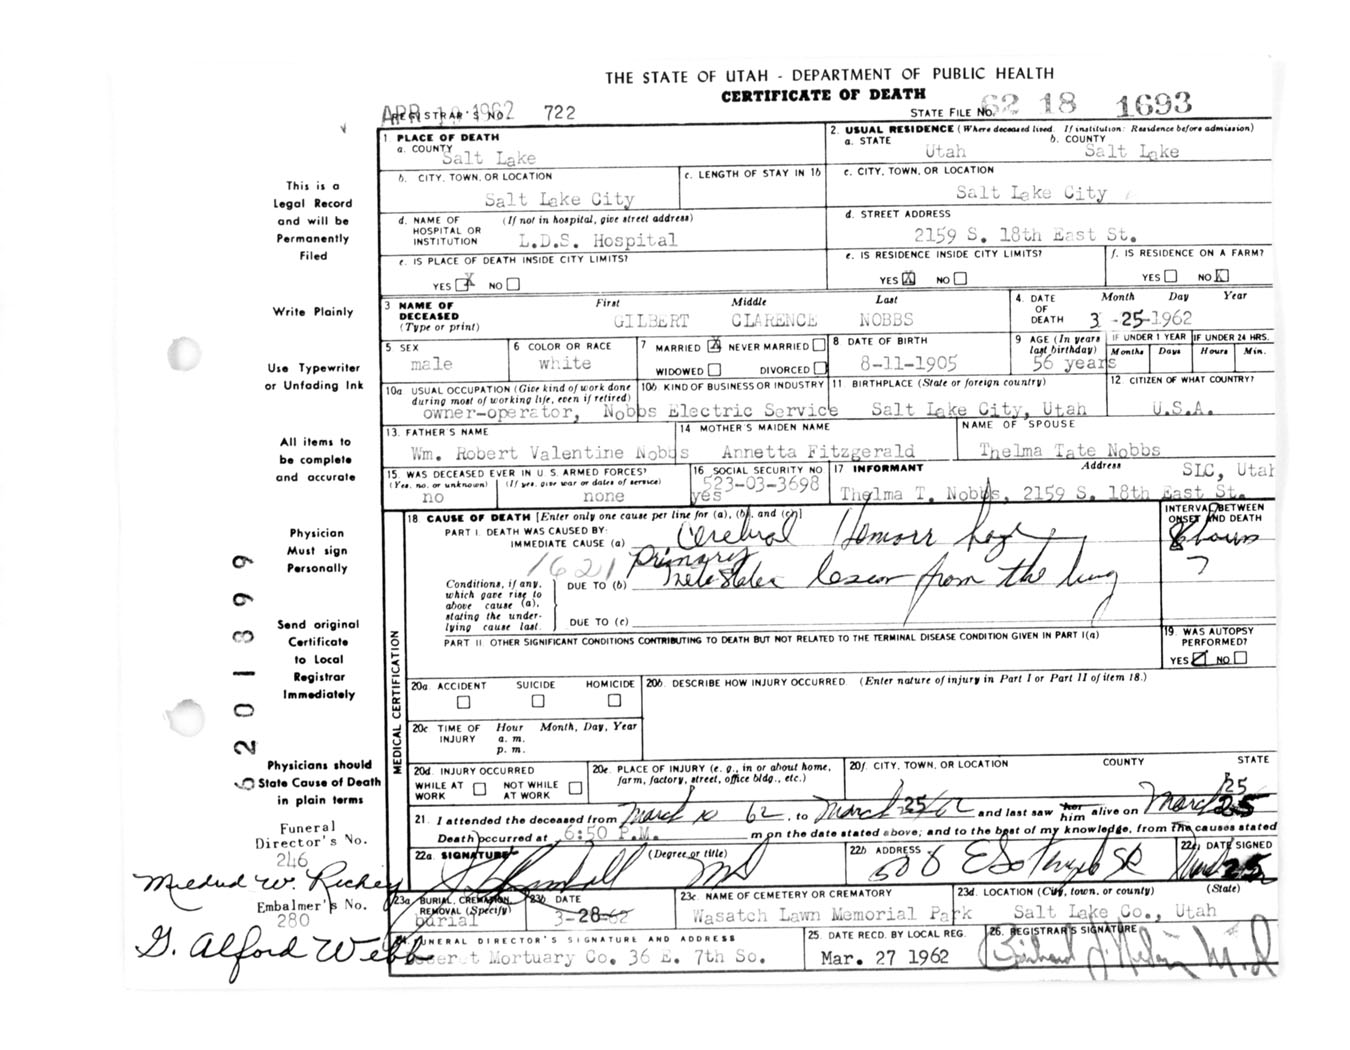 THE STATE OF UTAH - DEPARTMENT OF PUBLIC HEALTH
CERTIFICATE OF DEATH
APR 1962 REGISTRAR'S NO. 722
STATE FILE NO. 62 18 1693
1. PLACE OF DEATH
a. COUNTY
Salt Lake
2. USUAL RESIDENCE (Where deceased lived. If institution: Residence before admission)
a. STATE b. COUNTY
Utah Salt Lake
b. CITY, TOWN, OR LOCATION
Salt Lake City
c. LENGTH OF STAY IN 1b
c. CITY, TOWN, OR LOCATION
Salt Lake City
d. NAME OF HOSPITAL OR INSTITUTION (If not in hospital, give street address)
L.D.S. Hospital
d. STREET ADDRESS
2159 S. 18th East St.
e. IS PLACE OF DEATH INSIDE CITY LIMITS?
YES X NO
e. IS RESIDENCE INSIDE CITY LIMITS?
YES X NO
f. IS RESIDENCE ON A FARM?
YES NO X
3 NAME OF DECEASED (Type or print)
First Middle Last
GILBERT CLARENCE NOBBS
4. DATE OF DEATH
Month Day Year
3 -25-1962
5 SEX
male
6 COLOR OR RACE
white
7 MARRIED X NEVER MARRIED
WIDOWED DIVORCED
8 DATE OF BIRTH
8-11-1905
9 AGE (In years last birthday)
56 years
IF UNDER 1 YEAR IF UNDER 24 HRS.
Months Days Hours Min.
10a USUAL OCCUPATION (Give kind of work done during most of working life, even if retired)
10b KIND OF BUSINESS OR INDUSTRY
owner-operator, Nobbs Electric Service
11 BIRTHPLACE (State or foreign country)
Salt Lake City, Utah
12. CITIZEN OF WHAT COUNTRY?
U.S.A.
13. FATHER'S NAME
Wm. Robert Valentine Nobbs
14 MOTHER'S MAIDEN NAME
Annetta Fitzgerald
NAME OF SPOUSE
Thelma Tate Nobbs
15. WAS DECEASED EVER IN U S. ARMED FORCES?
(Yes, no, or unknown) (If yes, give war or dates of service)
no none
16 SOCIAL SECURITY NO
523-03-3698
yes
17 INFORMANT Address
SLC, Utah
Thelma T. Nobbs, 2159 S. 18th East St.
18 CAUSE OF DEATH [Enter only one cause per line for (a), (b), and (c)]
PART I. DEATH WAS CAUSED BY:
IMMEDIATE CAUSE (a) Cerebral Hemorrhage
INTERVAL BETWEEN ONSET AND DEATH
8 hours
1621 Primary
Conditions, if any, which gave rise to above cause (a), stating the underlying cause last.
DUE TO (b) lesion from the lung
?
DUE TO (c)
PART II. OTHER SIGNIFICANT CONDITIONS CONTRIBUTING TO DEATH BUT NOT RELATED TO THE TERMINAL DISEASE CONDITION GIVEN IN PART I(a)
19. WAS AUTOPSY PERFORMED?
YES NO
MEDICAL CERTIFICATION
20a. ACCIDENT SUICIDE HOMICIDE
20b. DESCRIBE HOW INJURY OCCURRED. (Enter nature of injury in Part I or Part II of item 18.)
20c TIME OF INJURY Hour Month, Day, Year
a. m.
p. m.
20d. INJURY OCCURRED
WHILE AT WORK NOT WHILE AT WORK
20e. PLACE OF INJURY (e. g., in or about home, farm, factory, street, office bldg., etc.)
20f. CITY, TOWN, OR LOCATION COUNTY STATE
25
21. I attended the deceased from March 10 62, to March 25/62 and last saw her him alive on March 25
Death occurred at 6:50 P.M. m on the date stated above; and to the best of my knowledge, from the causes stated
22a. SIGNATURE (Degree or title) MD
22b ADDRESS
508 E So Temple
22c. DATE SIGNED
March 25
23a BURIAL, CREMATION, REMOVAL (Specify)
burial
23b DATE
3-28-62
23c. NAME OF CEMETERY OR CREMATORY
Wasatch Lawn Memorial Park
23d. LOCATION (City, town, or county) (State)
Salt Lake Co., Utah
24. FUNERAL DIRECTOR'S SIGNATURE AND ADDRESS
Deseret Mortuary Co. 36 E. 7th So.
25. DATE RECD. BY LOCAL REG.
Mar. 27 1962
26. REGISTRAR'S SIGNATURE
M.D.
This is a
Legal Record
and will be
Permanently
Filed
Write Plainly
Use Typewriter
or Unfading Ink
All items to
be complete
and accurate
Physician
Must sign
Personally
Send original
Certificate
to Local
Registrar
Immediately
201399
Physicians should
State Cause of Death
in plain terms
Funeral
Director's No.
246
Mildred W. Richey
Embalmer's No.
280
G. Alford Webb